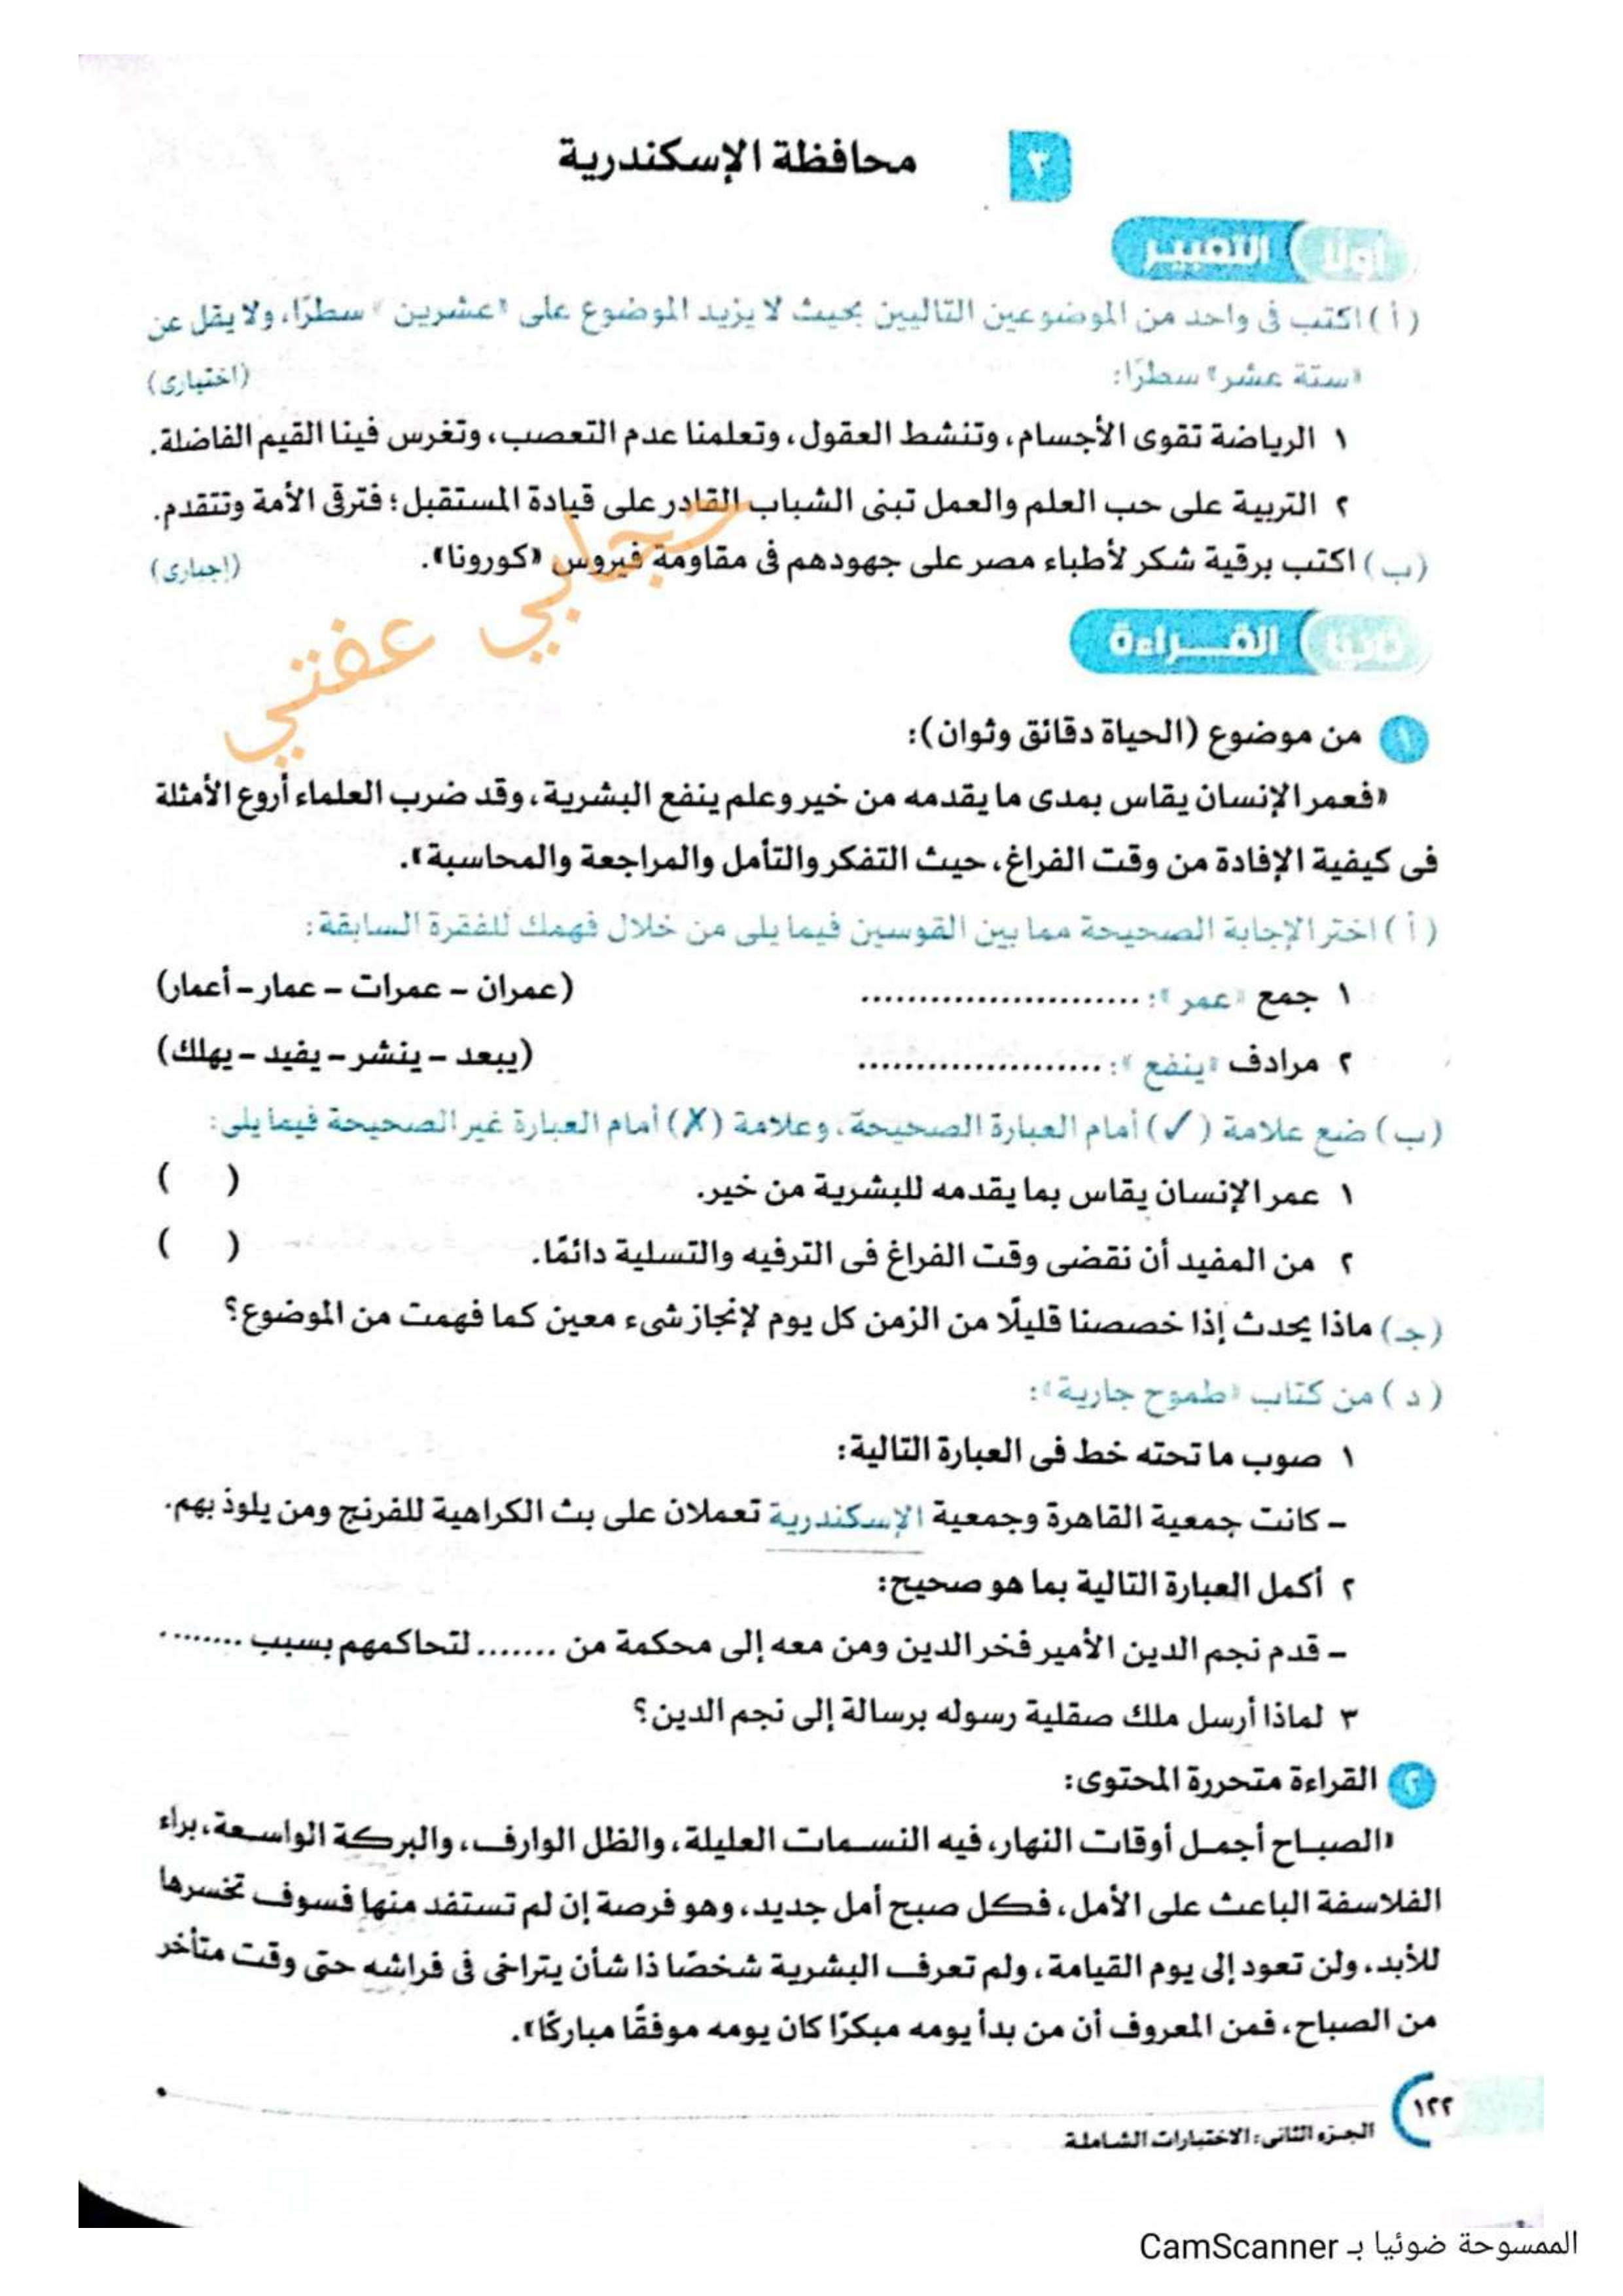 ٣ محافظة الإسكندرية
أولا التعبير
( أ ) اكتب فى واحد من الموضوعين التاليين بحيث لا يزيد الموضوع على «عشرين» سطرًا، ولا يقل عن
«ستة عشر» سطرًا: (اختيارى)
١ الرياضة تقوى الأجسام، وتنشط العقول، وتعلمنا عدم التعصب، وتغرس فينا القيم الفاضلة.
٢ التربية على حب العلم والعمل تبنى الشباب القادر على قيادة المستقبل؛ فترقى الأمة وتتقدم.
(ب) اكتب برقية شكر لأطباء مصر على جهودهم فى مقاومة فيروس «كورونا». (إجبارى)
حجابي عفتي
ثانيا القـــراءة
١ من موضوع (الحياة دقائق وثوان):
«فعمر الإنسان يقاس بمدى ما يقدمه من خير وعلم ينفع البشرية، وقد ضرب العلماء أروع الأمثلة
فى كيفية الإفادة من وقت الفراغ، حيث التفكر والتأمل والمراجعة والمحاسبة».
( أ ) اختر الإجابة الصحيحة مما بين القوسين فيما يلى من خلال فهمك للفقرة السابقة:
١ جمع «عمر»: ........................ (عمران – عمرات – عمار – أعمار)
٢ مرادف «ينفع»: ..................... (يبعد – ينشر – يفيد – يهلك)
(ب) ضع علامة (✓) أمام العبارة الصحيحة، وعلامة (✗) أمام العبارة غير الصحيحة فيما يلى:
١ عمر الإنسان يقاس بما يقدمه للبشرية من خير. ( )
٢ من المفيد أن نقضى وقت الفراغ فى الترفيه والتسلية دائمًا. ( )
(جـ) ماذا يحدث إذا خصصنا قليلًا من الزمن كل يوم لإنجاز شىء معين كما فهمت من الموضوع؟
( د ) من كتاب «طموح جارية»:
١ صوب ما تحته خط فى العبارة التالية:
– كانت جمعية القاهرة وجمعية الإسكندرية تعملان على بث الكراهية للفرنج ومن يلوذ بهم.
٢ أكمل العبارة التالية بما هو صحيح:
– قدم نجم الدين الأمير فخر الدين ومن معه إلى محكمة من ....... لتحاكمهم بسبب ........
٣ لماذا أرسل ملك صقلية رسوله برسالة إلى نجم الدين؟
٢ القراءة متحررة المحتوى:
«الصبـاح أجمـل أوقات النهار، فيه النسـمات العليلة، والظل الوارف، والبركة الواسـعة، براء
الفلاسفة الباعث على الأمل، فكل صبح أمل جديد، وهو فرصة إن لم تستفد منها فسوف تخسرها
للأبد، ولن تعود إلى يوم القيامة، ولم تعرف البشرية شخصًا ذا شأن يتراخى فى فراشه حتى وقت متأخر
من الصباح، فمن المعروف أن من بدأ يومه مبكرًا كان يومه موفقًا مباركًا».
١٢٢
الجزء الثانى: الاختبارات الشاملة
الممسوحة ضوئيا بـ CamScanner